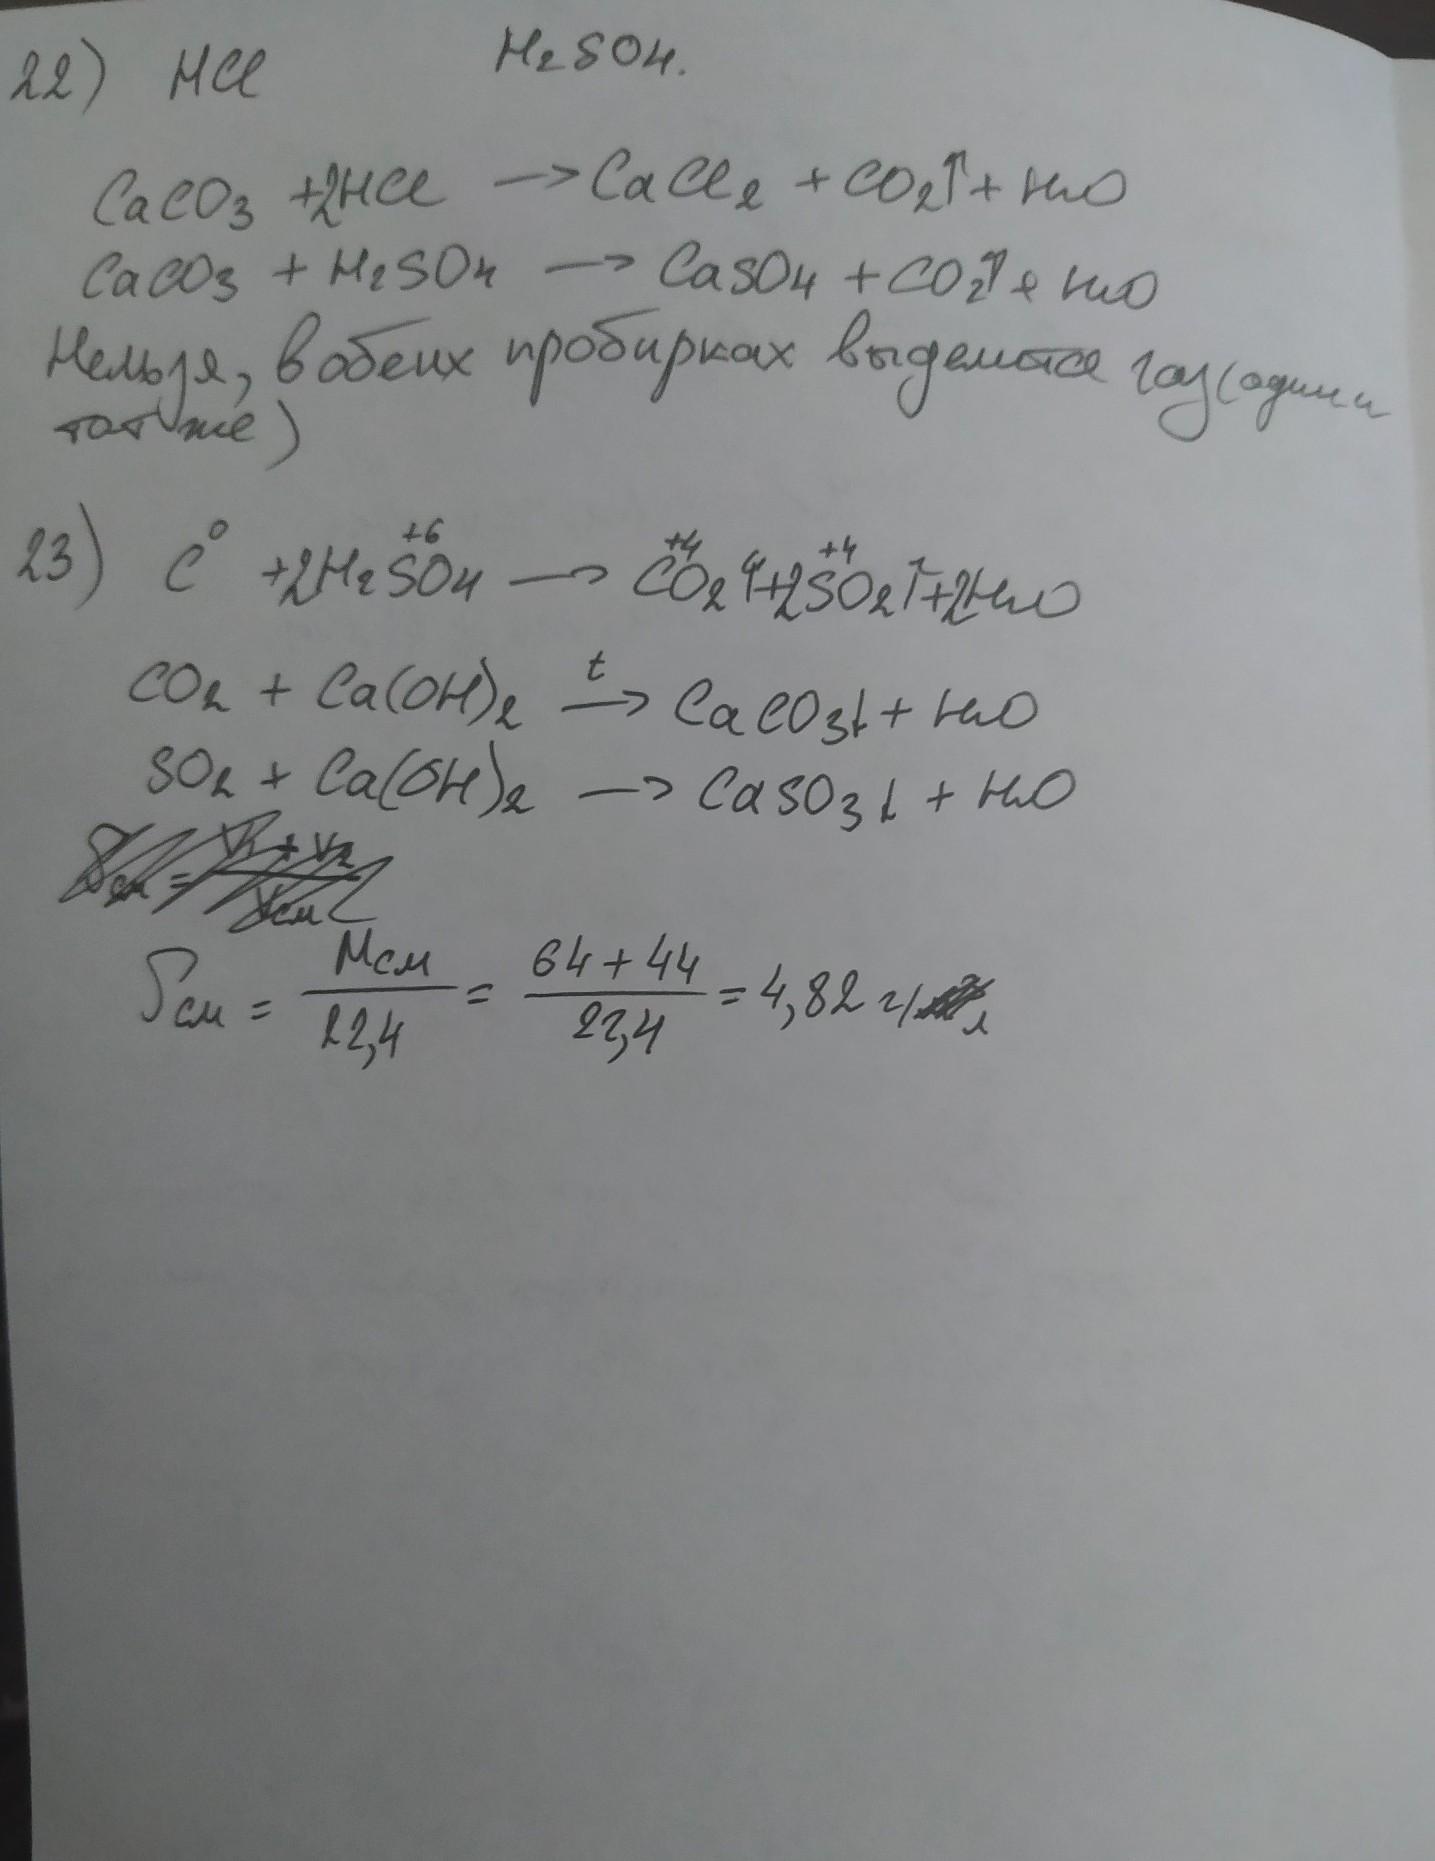 22) HCl H₂SO₄.
CaCO₃ +2HCl —> CaCl₂ + CO₂↑ + H₂O
CaCO₃ + H₂SO₄ —> CaSO₄ + CO₂↑ + H₂O
Нельзя, в обеих пробирках выделится газ (один и
тот же)
23) C⁰ +2H₂S⁺⁶O₄ —> C⁺⁴O₂↑+2S⁺⁴O₂↑+2H₂O
CO₂ + Ca(OH)₂ —ᵗ—> CaCO₃↓ + H₂O
SO₂ + Ca(OH)₂ —> CaSO₃↓ + H₂O
ρсм = Mсм / 22,4 = 64 + 44 / 22,4 = 4,82 г/л